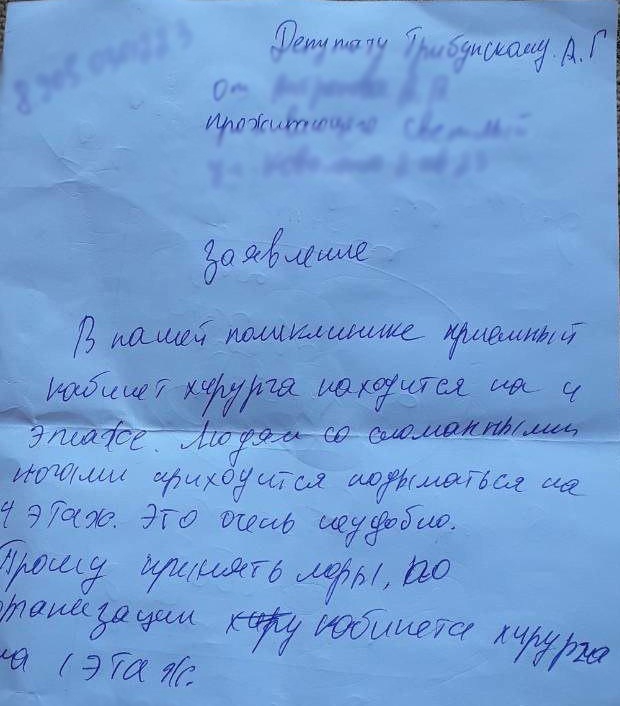 Депутату Трибунскому. А. Г
От
проживающего
Заявление
В нашей поликлинике приемный
кабинет хирурга находится на 4
этаже. Людям со сломанными
ногами приходится подыматься на
4 этаж. Это очень неудобно.
Прошу принять меры, по
организации кабинета хирурга
на 1 этаж.